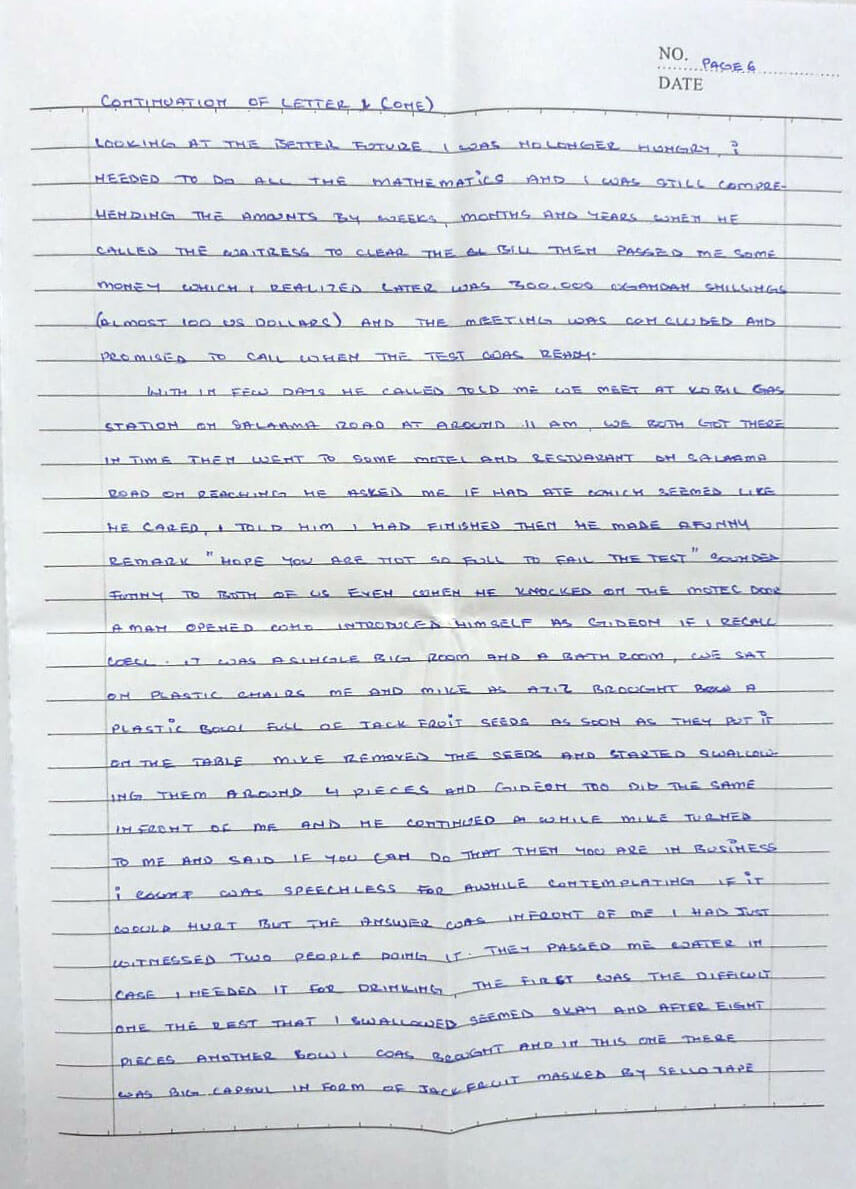 NO. PAGE 6
DATE
CONTINUATION OF LETTER 1 (ONE)
LOOKING AT THE BETTER FUTURE I WAS NO LONGER HUNGRY, i
NEEDED TO DO ALL THE MATHEMATICS AND I WAS STILL COMPRE-
HENDING THE AMOUNTS BY WEEKS, MONTHS AND YEARS WHEN HE
CALLED THE WAITRESS TO CLEAR THE BILL THEN PASSED ME SOME
MONEY WHICH I REALIZED LATER WAS 300.000 UGANDAN SHILLINGS
(ALMOST 100 US DOLLARS) AND THE MEETING WAS CONCLUDED AND
PROMISED TO CALL WHEN THE TEST WAS READY.
WITH IN FEW DAYS HE CALLED TOLD ME WE MEET AT KOBIL GAS
STATION ON SALAAMA ROAD AT AROUND 11 AM, WE BOTH GOT THERE
IN TIME THEN WENT TO SOME MOTEL AND RESTUARANT ON SALAAMA
ROAD ON REACHING HE ASKED ME IF HAD ATE WHICH SEEMED LIKE
HE CARED, I TOLD HIM I HAD FINISHED THEN HE MADE A FUNNY
REMARK "HOPE YOU ARE NOT SO FULL TO FAIL THE TEST" SOUNDED
FUNNY TO BOTH OF US EVEN WHEN HE KNOCKED ON THE MOTEL DOOR
A MAN OPENED WHO INTRODUCED HIMSELF AS GIDEON IF I RECALL
WELL. IT WAS A SINGLE BIG ROOM AND A BATH ROOM, WE SAT
ON PLASTIC CHAIRS ME AND MIKE AS AZIZ BROUGHT A
PLASTIC BOWL FULL OF JACK FRUIT SEEDS AS SOON AS THEY PUT IT
ON THE TABLE MIKE REMOVED THE SEEDS AND STARTED SWALLOW-
ING THEM AROUND 4 PIECES AND GIDEON TOO DID THE SAME
INFRONT OF ME AND HE CONTINUED A WHILE MIKE TURNED
TO ME AND SAID IF YOU CAN DO THAT THEN YOU ARE IN BUSINESS
i WAS SPEECHLESS FOR AWHILE CONTEMPLATING IF iT
WOULD HURT BUT THE ANSWER WAS INFRONT OF ME I HAD JUST
WITNESSED TWO PEOPLE DOING IT. THEY PASSED ME WATER IN
CASE I NEEDED IT FOR DRINKING, THE FIRST WAS THE DIFFICULT
ONE THE REST THAT I SWALLOWED SEEMED OKAY AND AFTER EIGHT
PIECES ANOTHER BOWL WAS BROUGHT AND IN THIS ONE THERE
WAS BIG CAPSUL IN FORM OF JACKFRUIT MASKED BY SELLOTAPE